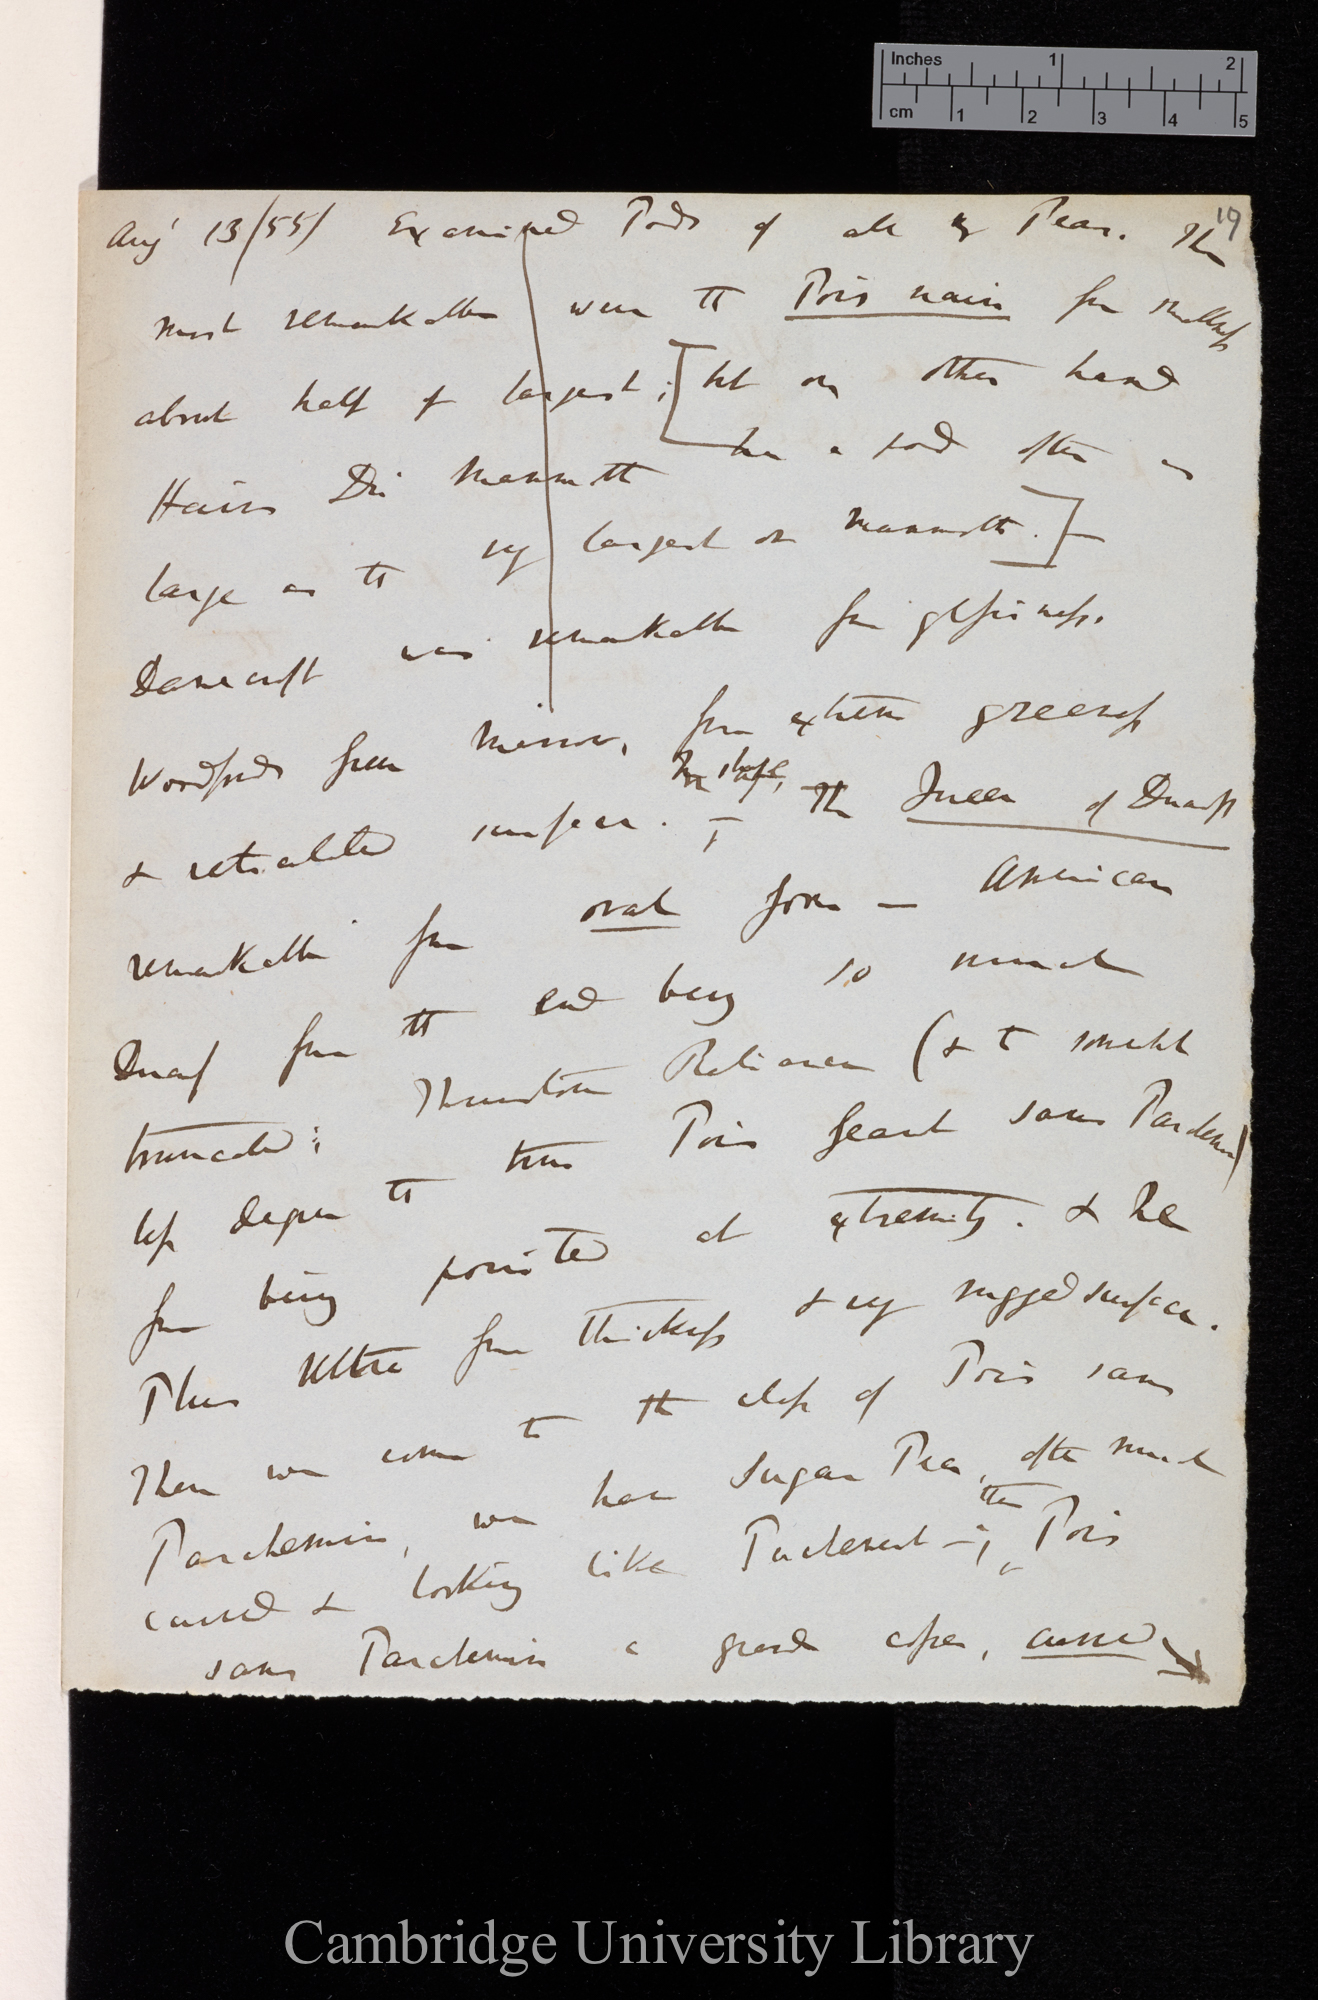 Inches 1 2
cm 1 2 3 4 5
19
Aug' 13/55/ Examined Pods of all my Peas. The
most remarkable were the Pois nain for smallness
about half of largest; [but on other hand
Hairs Dw Mammoth has a pod often as
large as the very largest on Mammoth.]—
Danecroft was remarkable for glossiness.
Woodfords Green Marrow, for extreme greeness
& reticulated surface. — In shape, The Queen of Dwarfs
remarkable for oval form — American
Dwarf for the end being so much
truncated; Thurston Reliance (& to somewhat
less degree the true Pois Geant sans Parchemin)
for being pointed at extremity. & Ne
Plus Ultra for thickness & very rugged surface.
Then we come to the class of Pois sans
Parchemin, we have Sugar Pea, often much
curved & looking like Puckered —; then Pois
sans Parchemin a grand cosse, curved
Cambridge University Library